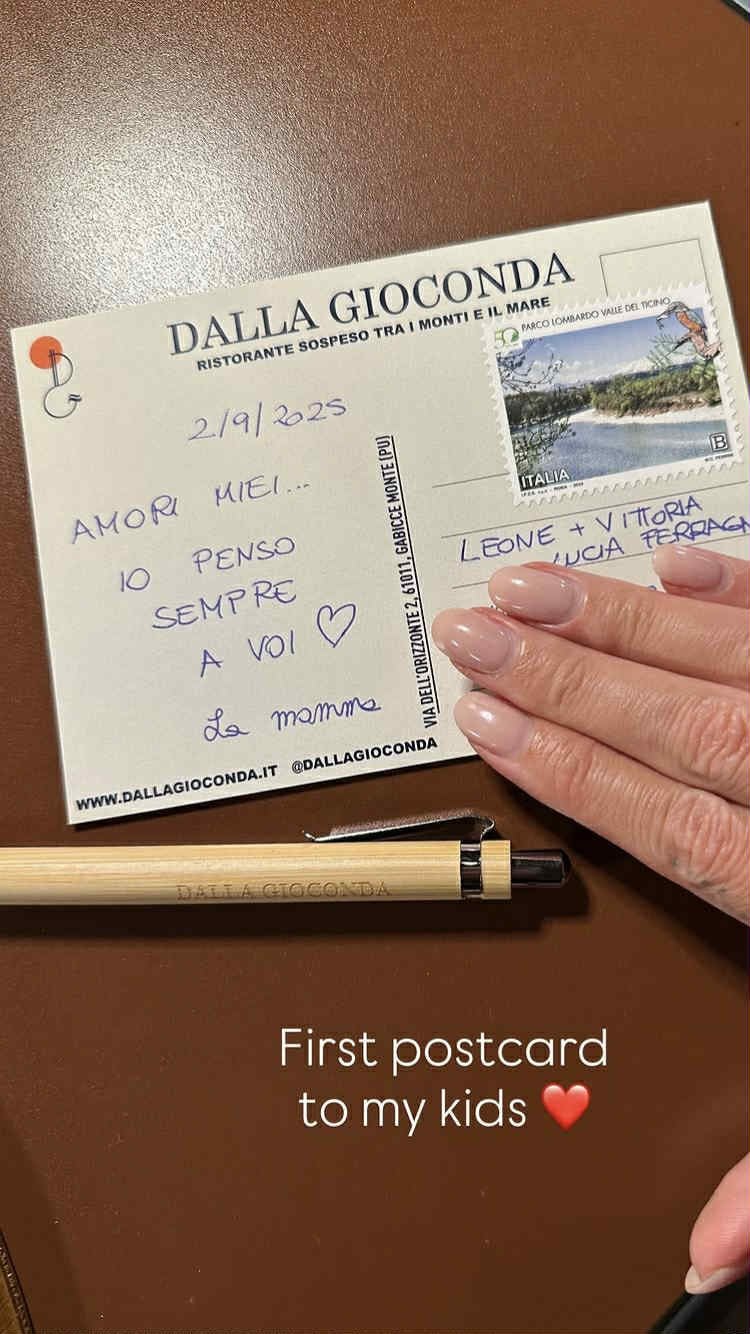 DALLA GIOCONDA
RISTORANTE SOSPESO TRA I MONTI E IL MARE
2/9/2025
AMORI MIEI...
IO PENSO
SEMPRE
A VOI ♡
La mamma
WWW.DALLAGIOCONDA.IT @DALLAGIOCONDA
VIA DELL'ORIZZONTE 2, 61011, GABICCE MONTE (PU)
50 PARCO LOMBARDO VALLE DEL TICINO
B
ITALIA
LEONE + VITTORIA
LUCIA FERRAGN
DALLA GIOCONDA
First postcard
to my kids ❤️